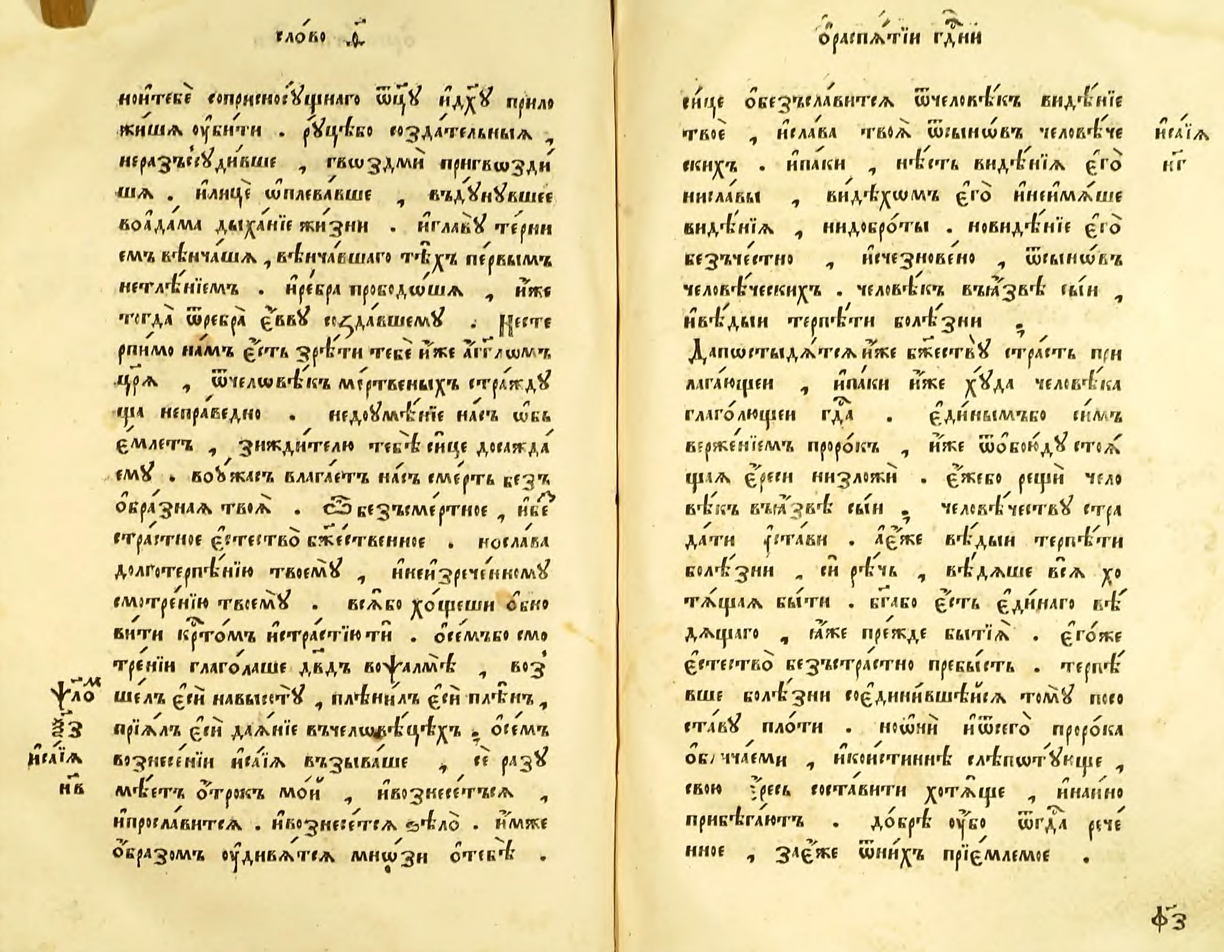 сло́во ѳ҃
но и҆тебѐ соприсносꙋ́щнаго ѿц҃ꙋ и҆дх҃ꙋ прило
жи́шѧ ᲂу҆би́ти . рꙋ́цѣбо созда́тельныѧ ,
неразъсꙋди́вше , гвѡздмѝ пригвѡзди́
шѧ . и҆лицѐ ѡ҆плева́вше , въдꙋнꙋ́вшее
воа҆да́ма дыха́нїе жи́зни . и҆главꙋ̀ те́рни
емъ вѣнча́шѧ , вѣнча́вшаго тѣ́хъ пе́рвымъ
нетлѣ́нїемъ . и҆ре́бра прободо́шѧ , и҆́же
тогда̀ ѿребра̀ є҆́ввꙋ созда́вшемꙋ . Несте
рпи́мо на́мъ є҆́сть зрѣ́ти тебѐ и҆́же а҆́гг҃лѡмъ
цр҃ѧ̀ , ѿчелѡвѣ́къ ме́ртвеныхъ стра́ждꙋ
ща непра́ведно . недоꙋмѣ́нїе на́съ ѡ҆бъ
є҆́млетъ , зижди́телю тебѣ̀ си́це досажда́
емꙋ . воᲂу҆́жасъ влага́етъ на́съ сме́рть безъ
ѻ҆бра́знаѧ твоѧ̀ . Ѽ безъсме́ртное , и҆бе
стра́стное є҆стество̀ бж҃е́ственное . но сла́ва
долготерпѣ́нїю твоемꙋ̀ , и҆неизрече́нномꙋ
смотре́нїю твоемꙋ̀ . всѧ̑бо хо́щеши ѻ҆бно
ви́ти крⷭ҇то́мъ и҆стра́стїю тѝ . ѻ҆се́мъбо смо
тре́нїи глаго́лаше дв҃дъ воѱалмѣ̀ , воз
ше́лъ є҆сѝ навысотꙋ̀ , плѣни́лъ є҆сѝ плѣ́нъ ,
прїѧ́лъ є҆сѝ даѧ́нїе въчеловѣ́цѣхъ . ѻ҆се́мъ
вознесе́нїи и҆са́їѧ взыва́ше , сѐ разꙋ
мѣ́етъ ѻ҆́трокъ мо́й , и҆вознесе́тъсѧ ,
и҆просла́витсѧ . и҆вознесе́тсѧ ѕѣлѡ̀ . и҆́мже
ѻ҆́бразомъ ᲂу҆дивѧ́тсѧ мно́ѕи ѻ҆тебѣ̀ .
ѱалоⷨ
ѯ҃з
и҆са́їѧ
н҃в
ѻ҆распѧ́тїи гдⷭ҇ни
си́це ѻ҆безъсла́витсѧ ѿчеловѣ́къ видѣ́нїе
твоѐ , и҆сла́ва твоѧ̀ ѿсынѡ́въ человѣ́че
скихъ . и҆па́ки , нѣ́сть видѣ́нїѧ є҆гѡ̀
нисла́вы , видѣ́хомъ є҆го̀ и҆неи҆мѧ́ше
видѣ́нїѧ , нидобро́ты . новидѣ́нїе є҆го̀
безъче́стно , и҆счезнове́но , ѿсынѡ́въ
человѣ́ческихъ . человѣ́къ въꙗ҆́звѣ сы́и ,
и҆вѣ́дыи терпѣ́ти болѣ́зни ;
Дапостыдѧ́тсѧ и҆́же бж҃ествꙋ̀ стра́сть при
лага́ющеи , и҆па́ки и҆́же хꙋ́да человѣ́ка
глаго́лющеи гдⷭ҇а . є҆ди́нымъбо си́мъ
верже́нїемъ проро́къ , и҆́же ѿѻ҆бою́дꙋ стоѧ́
щаѧ є҆́реси низложѝ . є҆́жебо рещѝ чело
вѣ́къ въꙗ҆́звѣ сы́и , человѣ́честву стра
да́ти ѹ҆ста́ви . а҆є҆́же вѣ́дыи терпѣ́ти
болѣ́зни , сѝ рѣ́чь , вѣ́дѧше всѧ̑ хо
тѧ́щаѧ бы́ти . бг҃або є҆́сть є҆ди́наго вѣ́
дѧщаго , ꙗ҆́же пре́жде бытїѧ̀ . є҆гѡ́же
є҆стество̀ безъстра́стно пребы́сть . терпѣ́
вше болѣ́зни соедини́вшейсѧ томꙋ̀ посо
ста́вꙋ пло́ти . но ѻ҆нѝ и҆ѿсегѡ̀ проро́ка
ѻ҆блича́еми , и҆кои́стиннѣ слѣпотꙋ́юще ,
свою̀ є҆́ресь соста́вити хотѧ́ще , и҆наи҆́но
прибѣга́ютъ . до́брѣ ᲂу҆́бо ѿгдⷭ҇а рече́
нное , заꙗ҆́же ѿни́хъ прїе́млемое .
и҆са́їѧ
н҃г
ф҃з